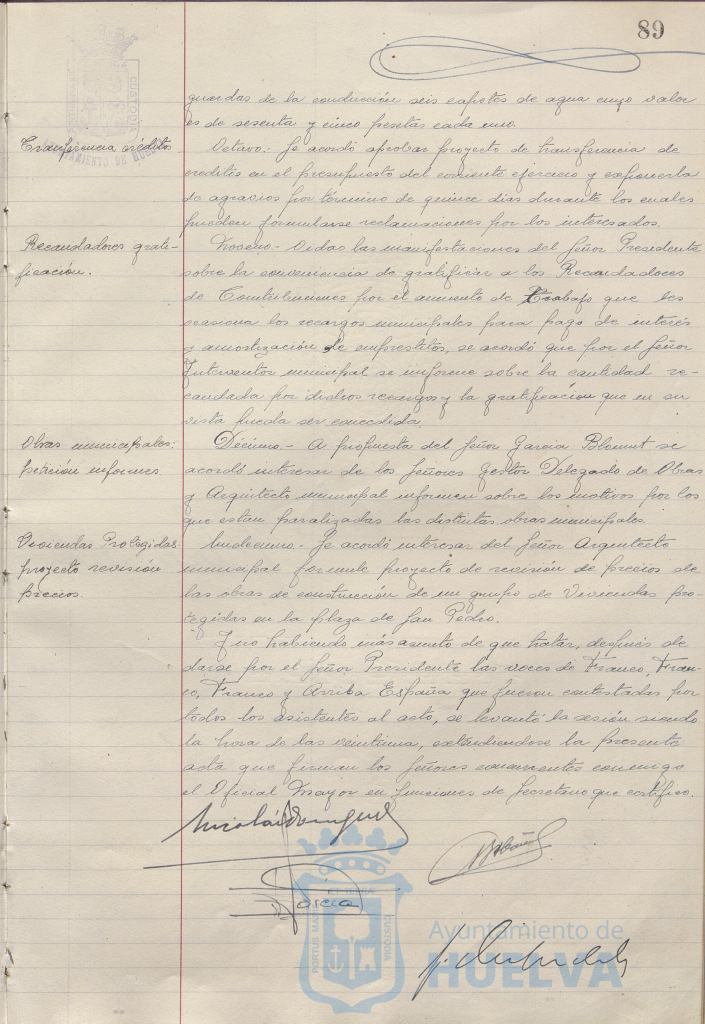 89
guardas de la conducción seis capotes de agua cuyo valor
es de sesenta y cinco pesetas cada uno.
Transferencia créditos
Octavo.- Se acordó aprobar proyecto de transferencia de
creditos en el presupuesto del corriente ejercicio y exponerla
de agravios por término de quince dias durante los cuales
pueden formularse reclamaciones por los interesados.
Recaudadores grati-
ficación.
Noveno.- Oidas las manifestaciones del Señor Presidente
sobre la conveniencia de gratificar a los Recaudadores
de Contribuciones por el aumento de trabajo que les
ocasiona los recargos municipales para pago de interés
y amortización de emprestitos, se acordó que por el Señor
Interventor municipal se informe sobre la cantidad re-
caudada por dichos recargos y la gratificación que en su
vista pueda ser concedida.
Obras municipales:
petición informes.
Décimo.- A propuesta del Señor Garcia se
acordó interesar de los Señores Gestor Delegado de Obras
y Arquitecto municipal informen sobre los motivos por los
que estan paralizadas las distintas obras municipales.
Viviendas Protegidas:
proyecto revisión
precios.
Undecimo.- Se acordó interesar del Señor Arquitecto
municipal formule proyecto de revisión de precios de
las obras de construcción de un grupo de Viviendas pro-
tegidas en la plaza de San Pedro.
Y no habiendo más asunto de que tratar, después de
darse por el Señor Presidente las voces de Franco, Fran-
co, Franco y Arriba España que fueron contestadas por
todos los asistentes al acto, se levantó la sesión siendo
la hora de las veintiuna, extendiendose la presente
acta que firman los Señores concurrentes conmigo
el Oficial Mayor en funciones de Secretario que certifico.
Garcia
PORTUS MARIS
ET TERRÆ
CUSTODIA
Ayuntamiento de
HUELVA